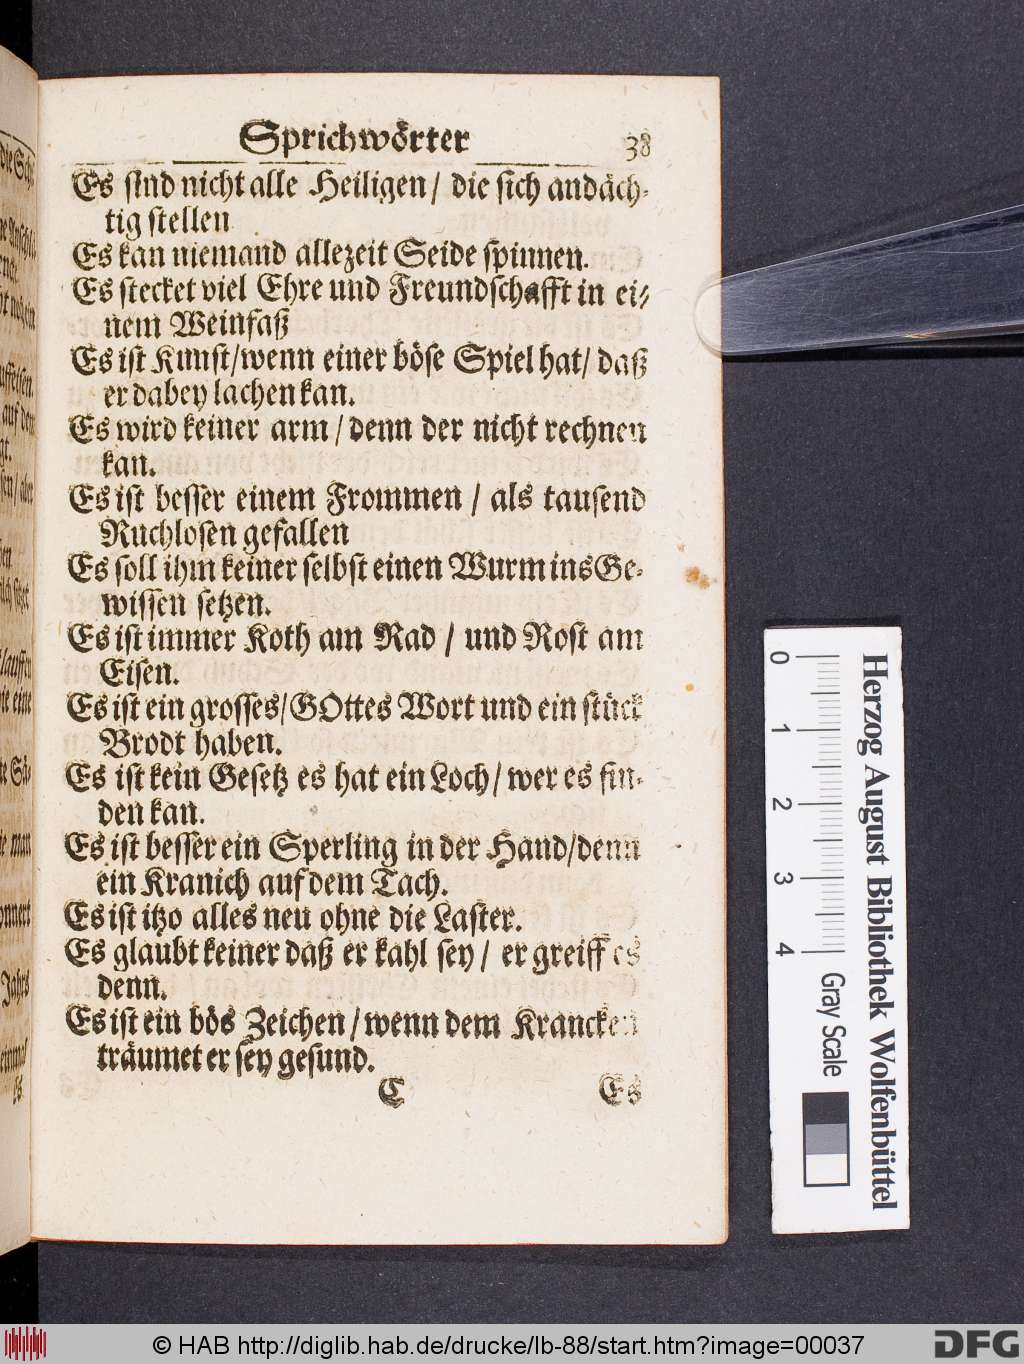 Sprichwörter 38
Es sind nicht alle Heiligen / die sich andäch-
tig stellen
Es kan niemand allezeit Seide spinnen.
Es stecket viel Ehre und Freundschafft in ei-
nem Weinfaß
Es ist Kunst/wenn einer böse Spiel hat/ daß
er dabey lachen kan.
Es wird keiner arm / denn der nicht rechnen
kan.
Es ist besser einem Frommen / als tausend
Ruchlosen gefallen
Es soll ihm keiner selbst einen Wurm ins Ge-
wissen setzen.
Es ist immer Koth am Rad / und Rost am
Eisen.
Es ist ein grosses/GOttes Wort und ein stück
Brodt haben.
Es ist kein Gesetz es hat ein Loch/ wer es fin-
den kan.
Es ist besser ein Sperling in der Hand/denn
ein Kranich auf dem Tach.
Es ist itzo alles neu ohne die Laster.
Es glaubt keiner daß er kahl sey / er greiff es
denn.
Es ist ein bös Zeichen / wenn dem Krancken
träumet er sey gesund.
C Es
0 1 2 3 4
Gray Scale
Herzog August Bibliothek Wolfenbüttel
© HAB http://diglib.hab.de/drucke/lb-88/start.htm?image=00037
DFG